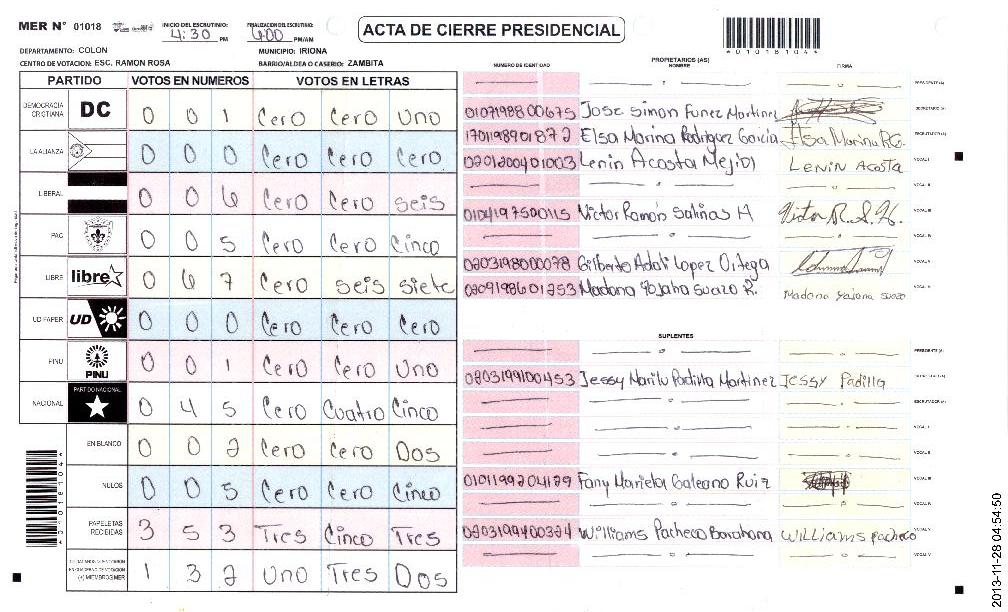 MER N° 01018
INICIO DEL ESCRUTINIO: 4:30 PM
FINALIZACION DEL ESCRUTINIO: 6:00 PM/AM
ACTA DE CIERRE PRESIDENCIAL
4010181044
DEPARTAMENTO: COLON
MUNICIPIO: IRIONA
CENTRO DE VOTACION: ESC. RAMON ROSA
BARRIO/ALDEA O CASERIO: ZAMBITA
PARTIDO VOTOS EN NUMEROS VOTOS EN LETRAS
DEMOCRACIA CRISTIANA DC 0 0 1 Cero Cero Uno
LA ALIANZA 0 0 0 Cero Cero Cero
LIBERAL 0 0 6 Cero Cero seis
PAC 0 0 5 Cero Cero Cinco
LIBRE libre 0 6 7 Cero seis siete
UD FAPER UD 0 0 0 Cero Cero Cero
PINU PINU 0 0 1 Cero Cero Uno
NACIONAL PARTIDO NACIONAL 0 4 5 Cero Cuatro Cinco
EN BLANCO 0 0 2 Cero Cero Dos
NULOS 0 0 5 Cero Cero Cinco
PAPELETAS RECIBIDAS 3 5 3 Tres Cinco Tres
(+) MIEMBROS MER 1 3 2 Uno Tres Dos
PROPIETARIOS (AS)
NUMERO DE IDENTIDAD NOMBRE FIRMA
PRESIDENTE (A)
0107198800675 Jose Simon Funez Martinez SECRETARIO (A)
1701198901872 Elsa Marina Rodriguez Garcia Elsa Marina RG. ESCRUTADOR (A)
0201200401003 Lenin Acosta Mejia LENIN ACOSTA VOCAL I
VOCAL II
0104197500115 Victor Ramón Salinas H Victor R. S. H. VOCAL III
VOCAL IV
0203198000078 Gilberto Adali Lopez Ortega VOCAL V
0209198601253 Madona Suazo R. Madona suazo
SUPLENTES
PRESIDENTE (A)
0203199100453 Jessy Marilu Padilla Martinez JESSY Padilla SECRETARIO (A)
ESCRUTADOR (A)
VOCAL I
VOCAL II
0101199204129 Fany Mariela Galeano Ruiz VOCAL III
VOCAL IV
0203199400324 Williams Pacheco Barahona WILLIAMS pacheco VOCAL V
VOCAL VI
2013-11-28 04:54:50